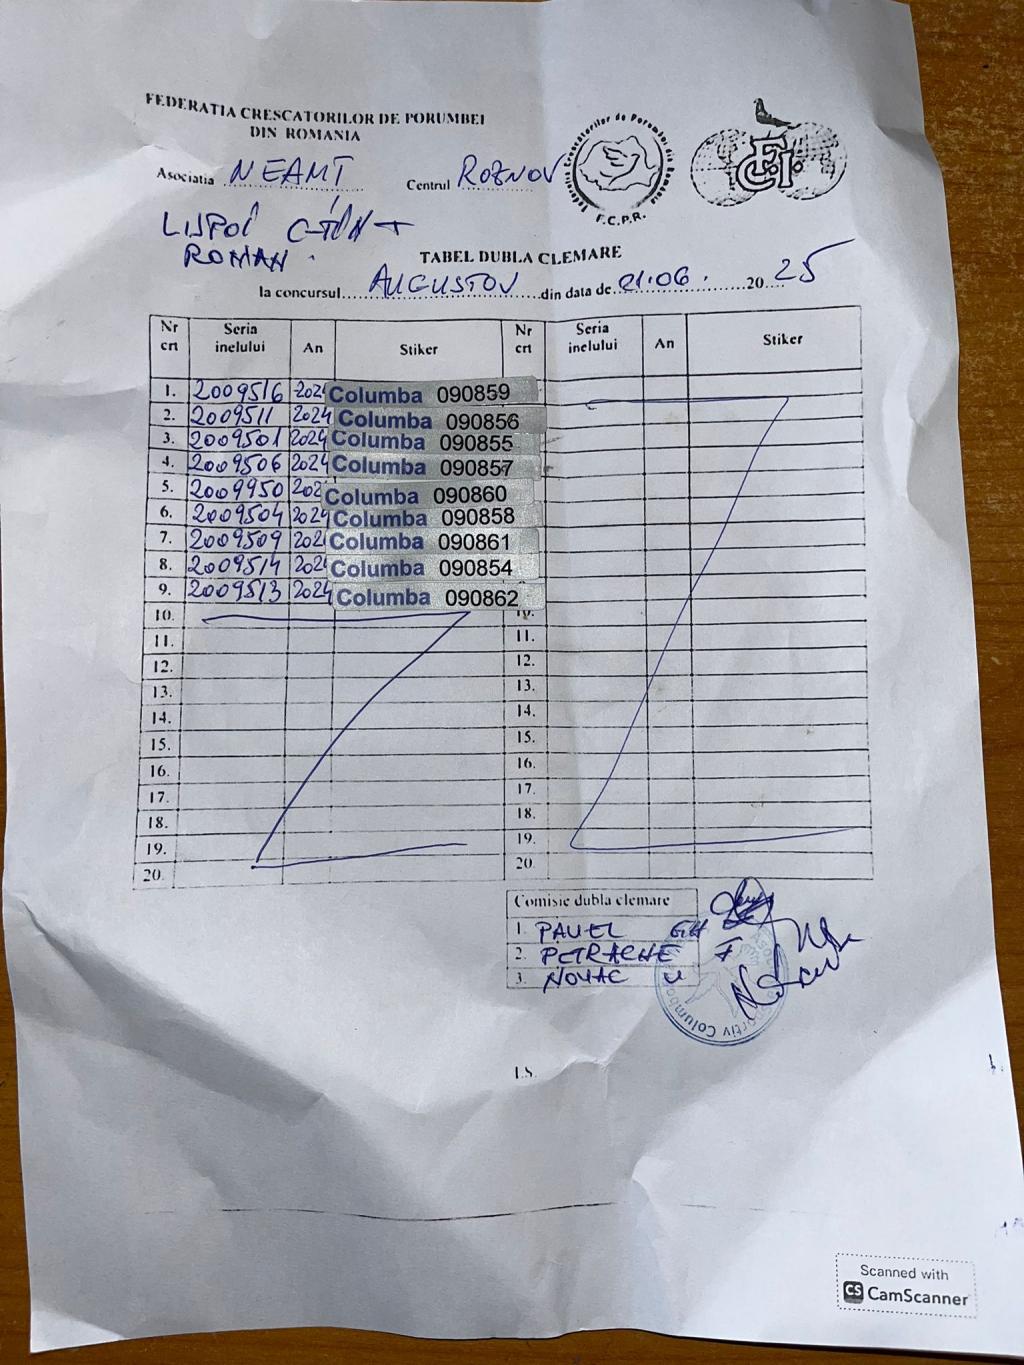 FEDERATIA CRESCATORILOR DE PORUMBEI
DIN ROMANIA
Asociatia NEAMȚ Centrul ROZNOV
Federatia Crescatorilor de Porumbei din Romania
F.C.P.R.
FCI
ROMAN.
TABEL DUBLA CLEMARE
la concursul AUGUSTOV din data de 21.06. 2025
Nr crt Seria inelului An Stiker Nr crt Seria inelului An Stiker
1. 2009516 2024 Columba 090859
2. 2009511 2024 Columba 090856
3. 2009501 2024 Columba 090855
4. 2009506 2024 Columba 090857
5. 2009950 202 Columba 090860
6. 2009504 2024 Columba 090858
7. 2009509 202 Columba 090861
8. 2009514 202 Columba 090854
9. 2009513 2024 Columba 090862
10. 10.
11. 11.
12. 12.
13. 13.
14. 14.
15. 15.
16. 16.
17. 17.
18. 18.
19. 19.
20. 20.
Comisie dubla clemare
1. PAVEL GH
2. PETRACHE F
3. NOVAC V
Columbo
L.S.
Scanned with
CS CamScanner